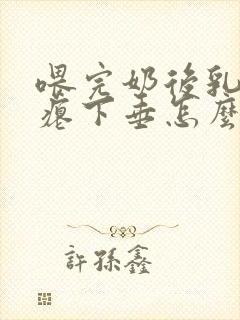 喂完奶後乳
癟下垂怎麼
許孫鑫